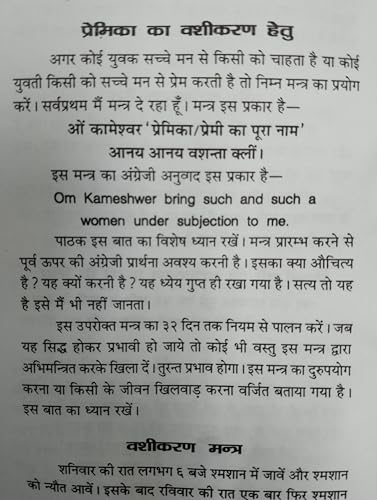 प्रेमिका का वशीकरण हेतु
अगर कोई युवक सच्चे मन से किसी को चाहता है या कोई
युवती किसी को सच्चे मन से प्रेम करती है तो निम्न मन्त्र का प्रयोग
करें। सर्वप्रथम मैं मन्त्र दे रहा हूँ। मन्त्र इस प्रकार है—
ओं कामेश्वर 'प्रेमिका/प्रेमी का पूरा नाम'
आनय आनय वशन्ता क्लीं।
इस मन्त्र का अंग्रेजी अनुवाद इस प्रकार है—
Om Kameshwer bring such and such a
women under subjection to me.
पाठक इस बात का विशेष ध्यान रखें। मन्त्र प्रारम्भ करने से
पूर्व ऊपर की अंग्रेजी प्रार्थना अवश्य करनी है। इसका क्या औचित्य
है ? यह क्यों करनी है ? यह ध्येय गुप्त ही रखा गया है। सत्य तो यह
है इसे मैं भी नहीं जानता।
इस उपरोक्त मन्त्र का ३२ दिन तक नियम से पालन करें। जब
यह सिद्ध होकर प्रभावी हो जाये तो कोई भी वस्तु इस मन्त्र द्वारा
अभिमन्त्रित करके खिला दें। तुरन्त प्रभाव होगा। इस मन्त्र का दुरुपयोग
करना या किसी के जीवन खिलवाड़ करना वर्जित बताया गया है।
इस बात का ध्यान रखें।
वशीकरण मन्त्र
शनिवार की रात लगभग ६ बजे श्मशान में जावें और श्मशान
को न्यौत आवें। इसके बाद रविवार की रात एक बार फिर श्मशान